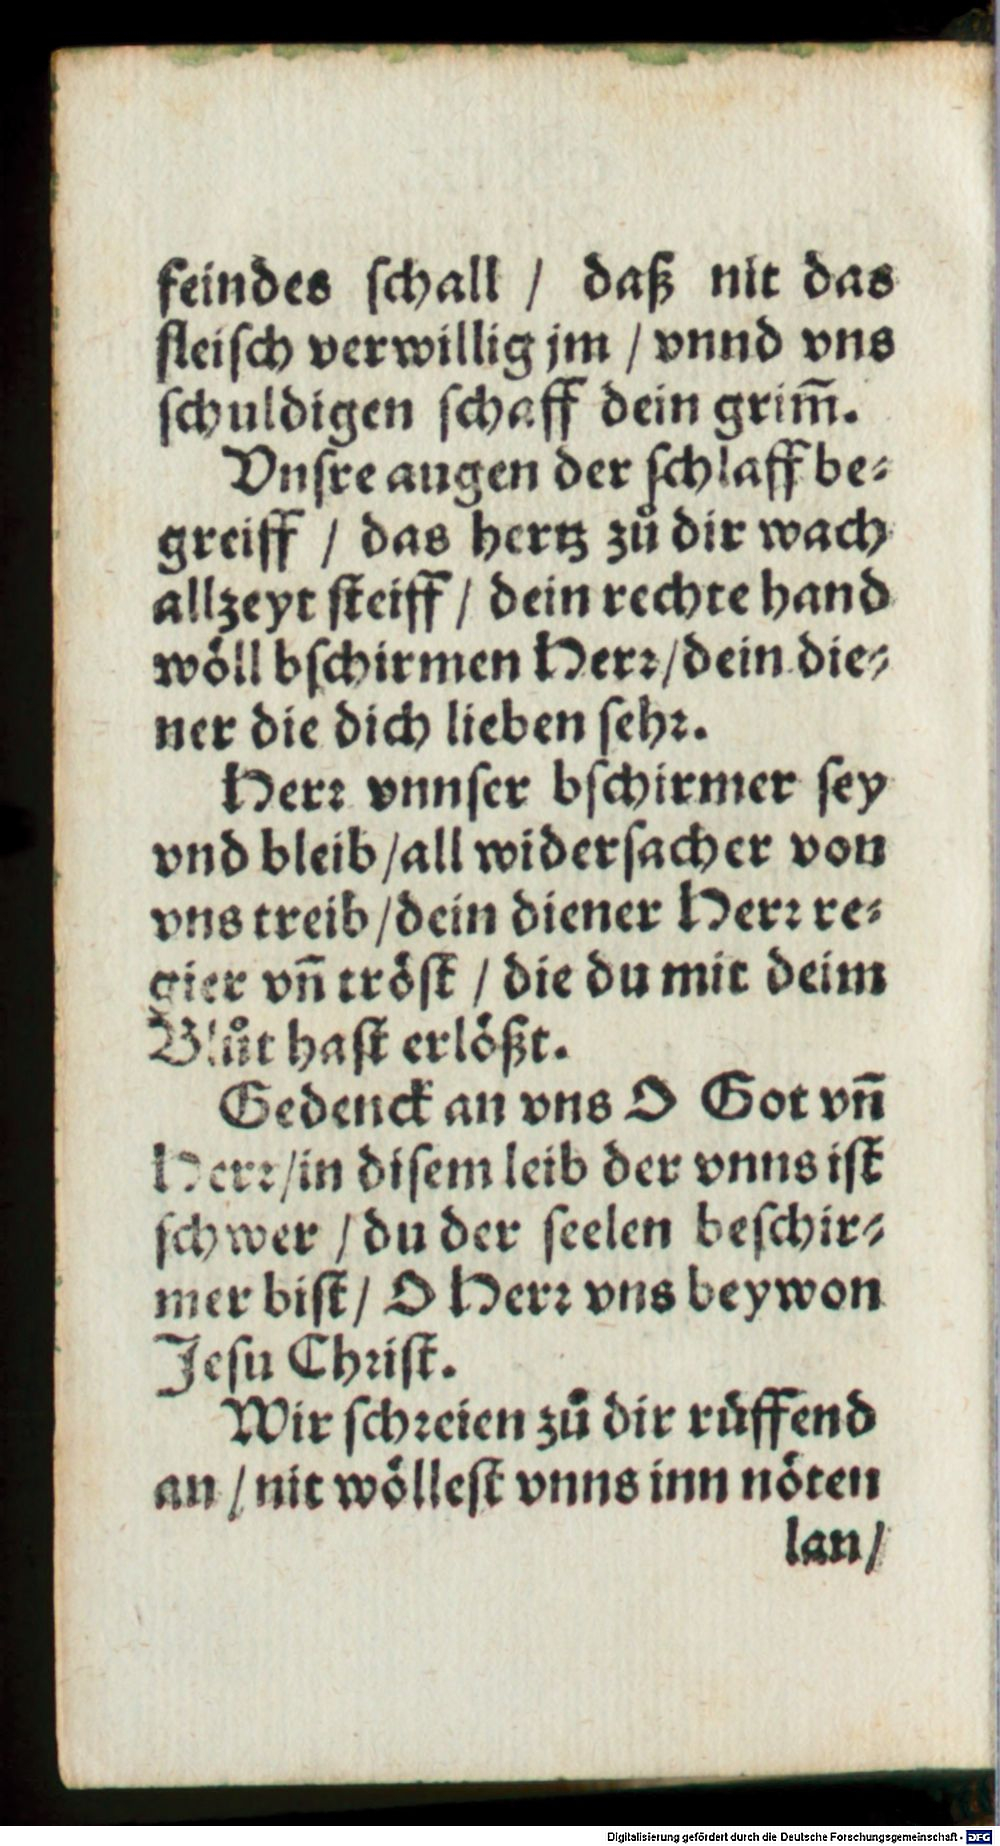 feindes ſchall / daß nit das
fleiſch verwillig jm / vnnd vns
ſchuldigen ſchaff dein grim̄.
Vnſre augen der ſchlaff be⸗
greiff / das hertz zů dir wach
allzeyt ſteiff / dein rechte hand
wöll bſchirmen Herꝛ / dein die⸗
ner die dich lieben ſehꝛ.
Herꝛ vnnſer bſchirmer ſey
vnd bleib / all widerſacher von
vns treib / dein diener Herꝛ re⸗
gier vn̄ tröſt / die du mit deim
Blůt haſt erlößt.
Gedenck an vns O Got vn̄
Herꝛ / in diſem leib der vnns iſt
ſchwer / du der ſeelen beſchir⸗
mer biſt / O Herꝛ vns beywon
Jeſu Chꝛiſt.
Wir ſchꝛeien zů dir růffend
an / nit wölleſt vnns inn nöten
lan /
Digitalisierung gefördert durch die Deutsche Forschungsgemeinschaft - DFG